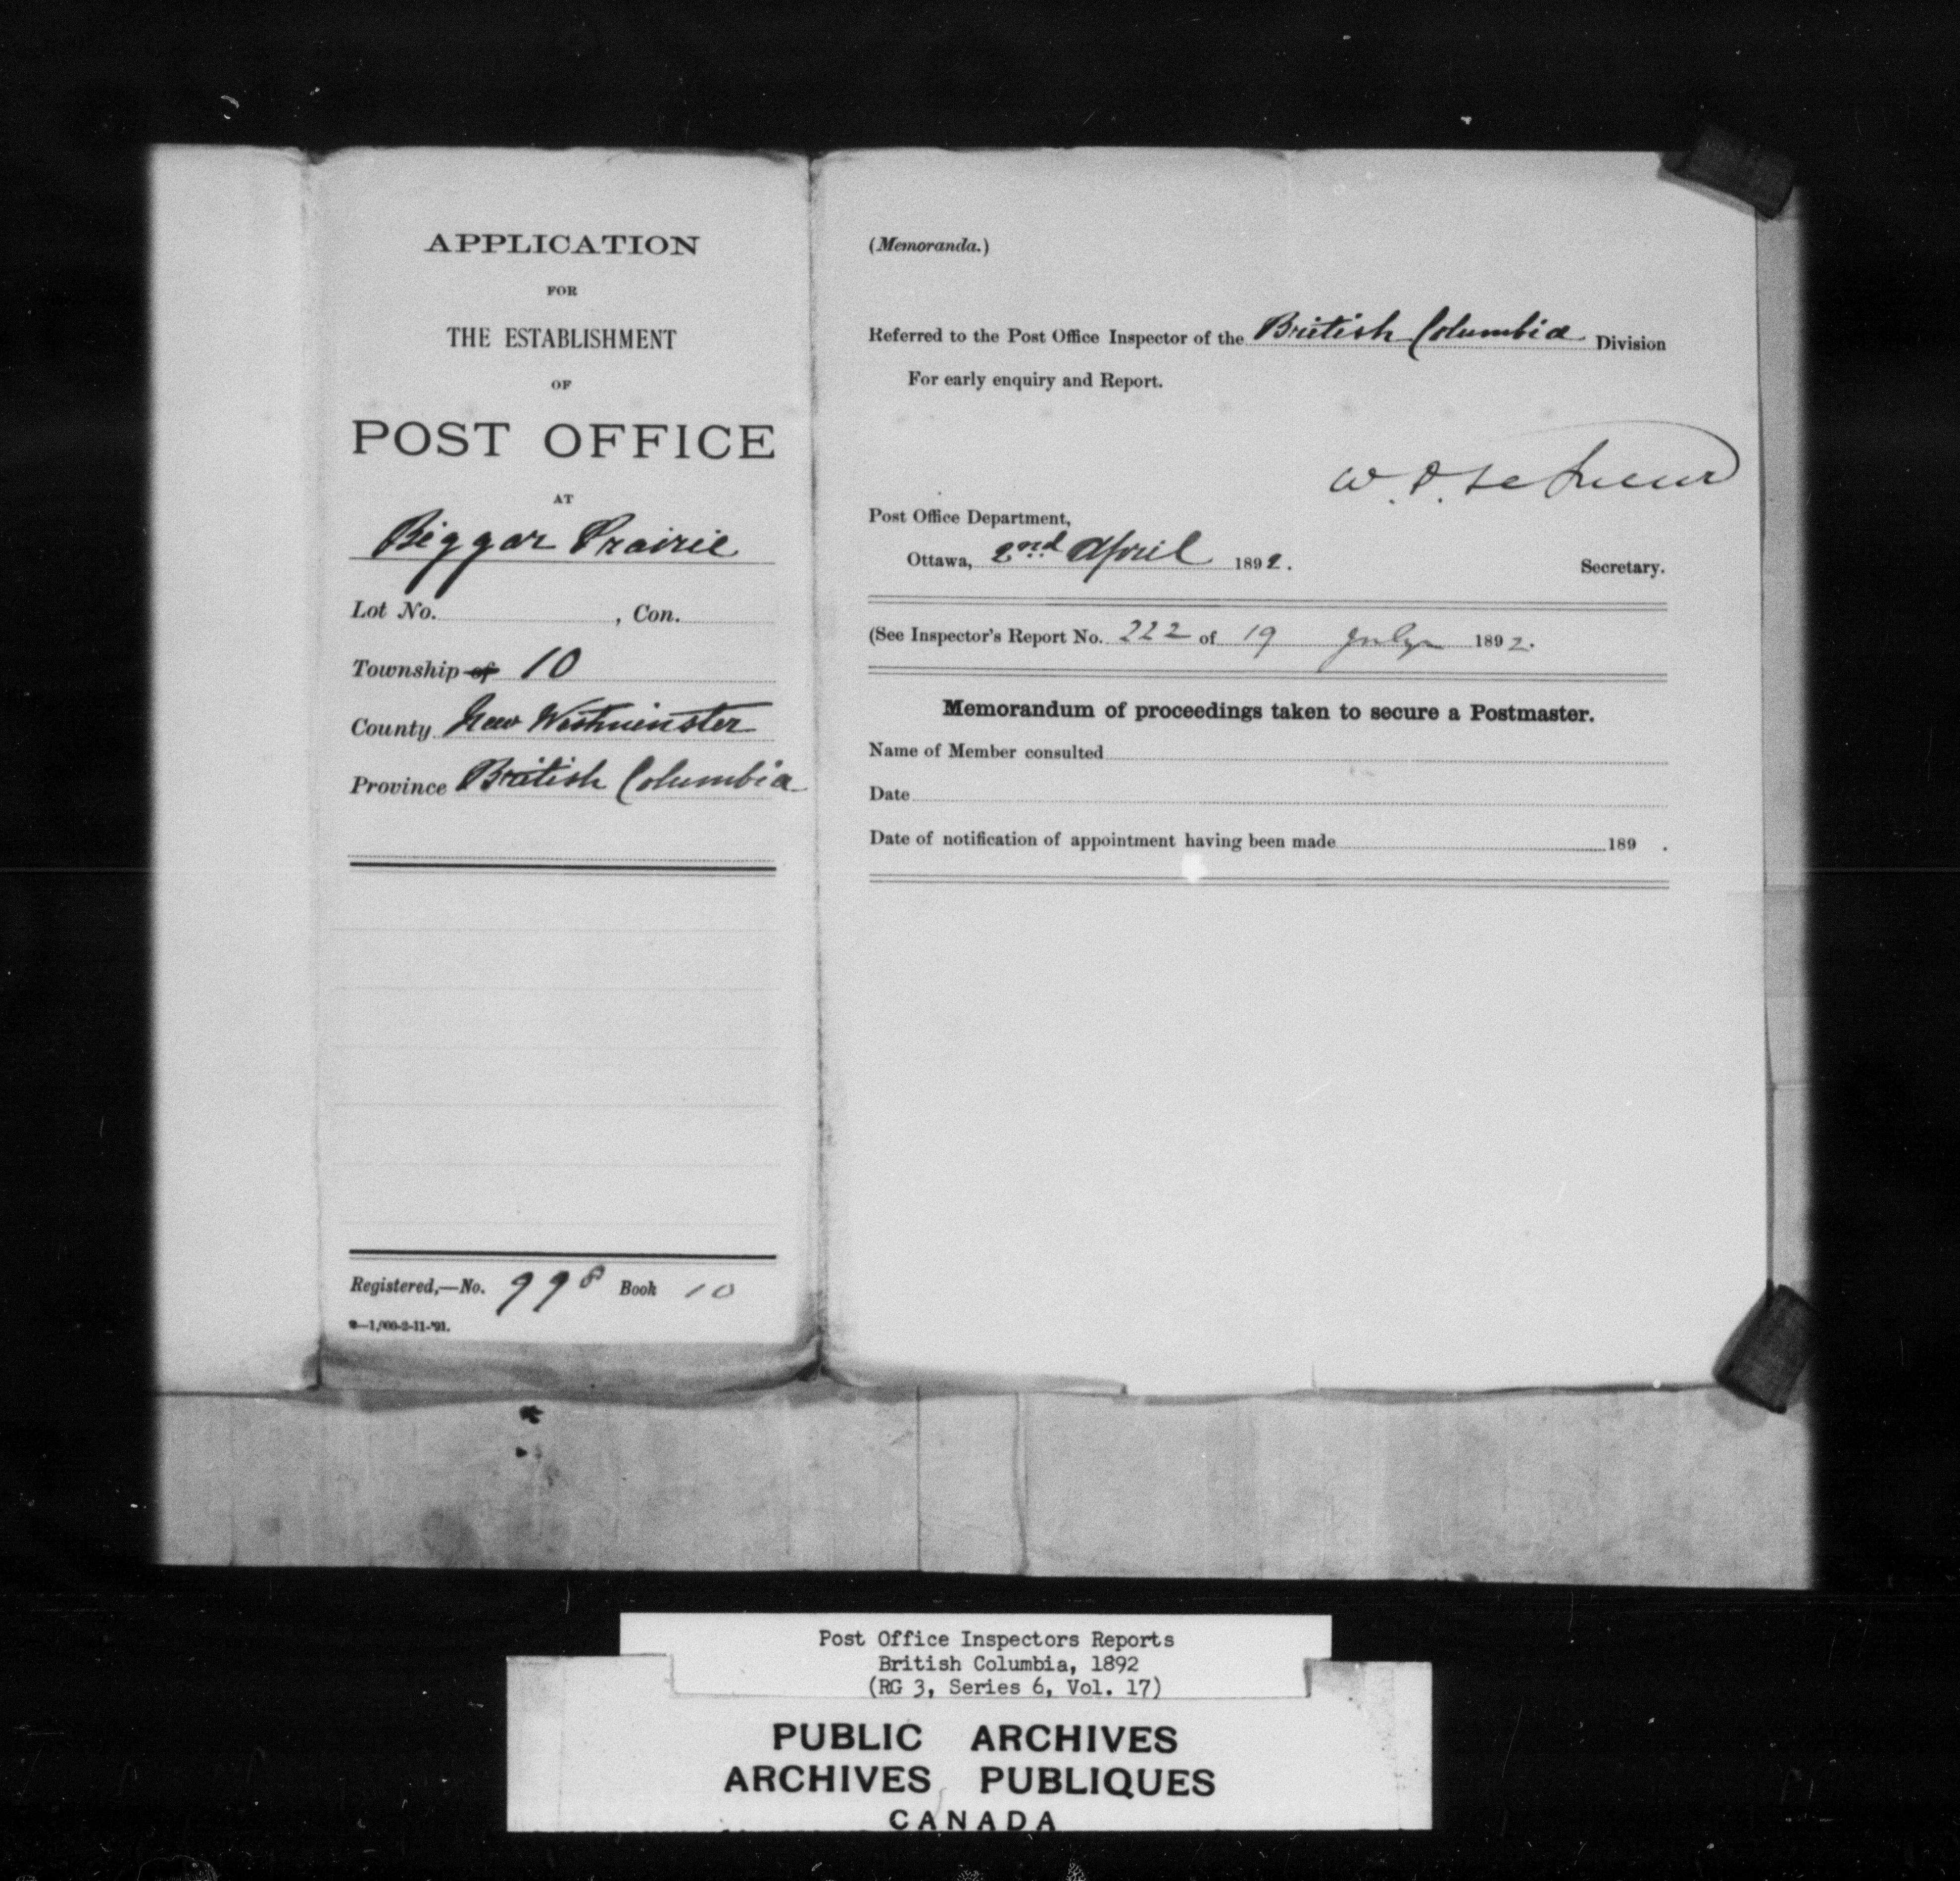 APPLICATION
FOR
THE ESTABLISHMENT
OF
POST OFFICE
AT
Biggar Prairie
Lot No. , Con.
Township of 10
County New Westminster
Province British Columbia
Registered,—No. 998 Book 10
(Memoranda.)
Referred to the Post Office Inspector of the British Columbia Division
For early enquiry and Report.
W. D. LeSueur
Post Office Department,
Ottawa, 2nd April 1892.
Secretary.
(See Inspector's Report No. 222 of 19 July 1892.
Memorandum of proceedings taken to secure a Postmaster.
Name of Member consulted
Date
Date of notification of appointment having been made 189 .
Post Office Inspectors Reports
British Columbia, 1892
(RG 3, Series 6, Vol. 17)
PUBLIC ARCHIVES
ARCHIVES PUBLIQUES
CANADA